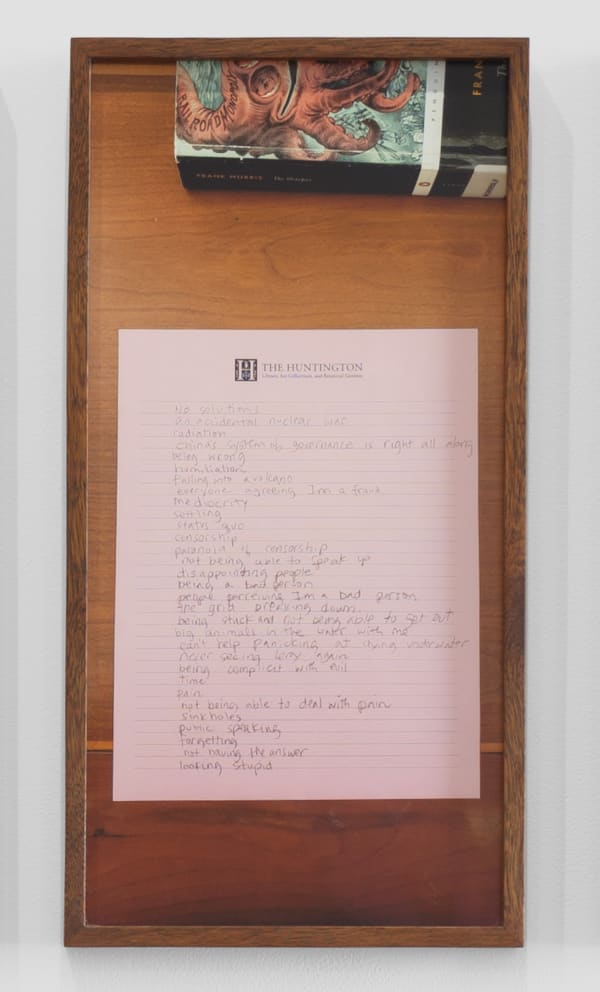 RAILROAD MONOPOLY
PENGUIN
FRAN
The
FRANK NORRIS The Octopus
THE HUNTINGTON
Library, Art Collections, and Botanical Gardens
No solutions
an accidental nuclear war
radiation
China's system of governance is right all along
being wrong
humiliation
falling into a volcano
everyone agreeing I'm a fraud
mediocrity
settling
status quo
censorship
paranoia of censorship
not being able to speak up
disappointing people
being a bad person
people perceiving I'm a bad person
the grid breaking down
being stuck and not being able to get out
big animals in the water with me
can't help panicking at diving underwater
never seeing again
being complicit with evil
time
pain
not being able to deal with pain
sinkholes
public speaking
forgetting
not having the answer
looking stupid